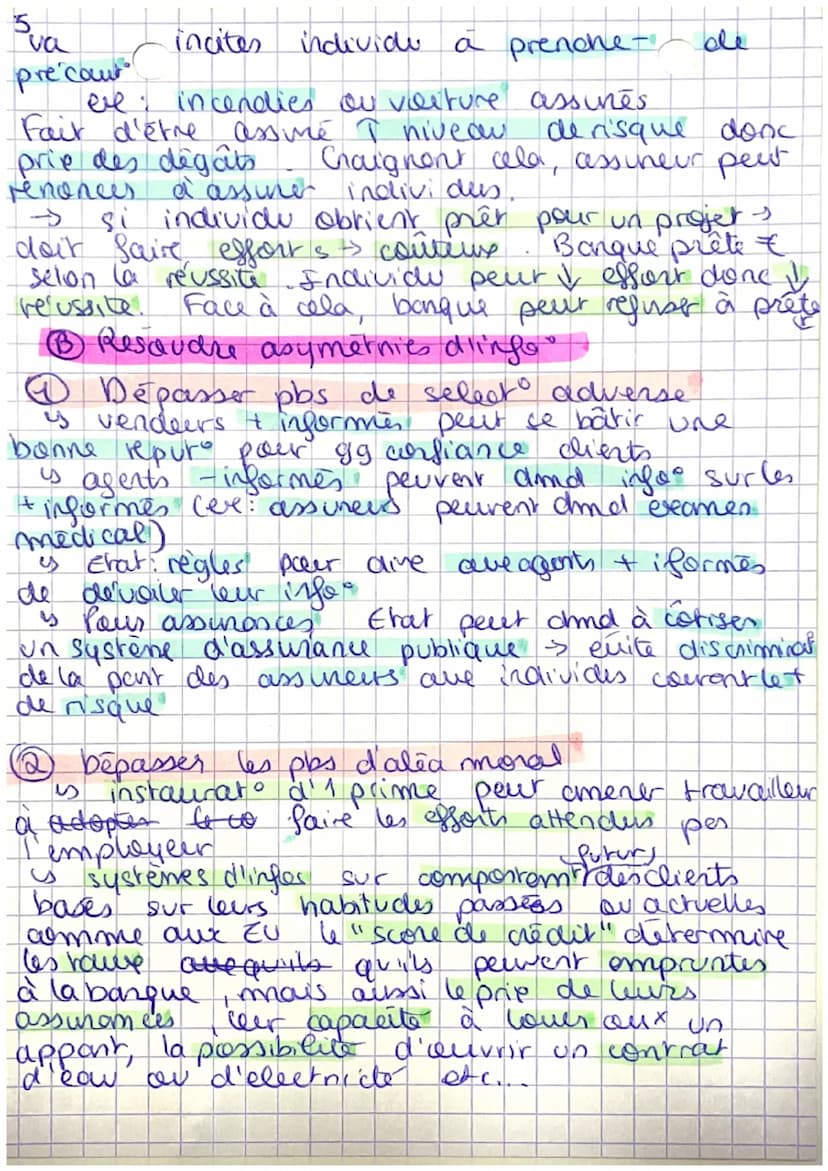 5
va incites individu à prendre - de
précaut°
exe : incendies ou voiture assurés
Fait d'être assuré ↑ niveau de risque donc
prix des dégâts. Craignant cela, assureur peut
renoncer à assurer individus.
→ si individu obtient prêt pour un projet →
doit faire efforts → coûteux. Banque prête €
selon la réussite. Individu peut ↓ effort donc ↓
réussite. Face à cela, banque peut refuser à prête
r
Ⓑ Résoudre asymétries d'info°
① Dépasser pbs de select° adverse
↳ vendeurs + informés peut se bâtir une
bonne réput° pour gg confiance clients
↳ agents - informés peuvent dmd info° sur les
+ informés (exe : assureurs peuvent dmd examen
médical)
↳ Etat : règles pour dire aux agents + iformés
de dévoiler leur info°
↳ Pour assurances, Etat peut dmd à cotiser
un système d'assurance publique → évite discriminat°
de la part des assureurs aux individus courent le +
de risque
② Dépasser les pbs d'aléa moral
↳ instaurat° d'1 prime peut amener travailleur
à adopter le co faire les efforts attendus par
l'employeur
↳ systèmes d'infos sur comportemt futurs des clients
basés sur leurs habitudes passées ou actuelles
comme aux EU le "score de crédit" détermine
les taux qu'ils peuvent empruntes
à la banque, mais aussi le prix de leurs
assurances, leur capacité à louer un
appart, la possibilité d'ouvrir un contrat
d'eau ou d'électricité etc...